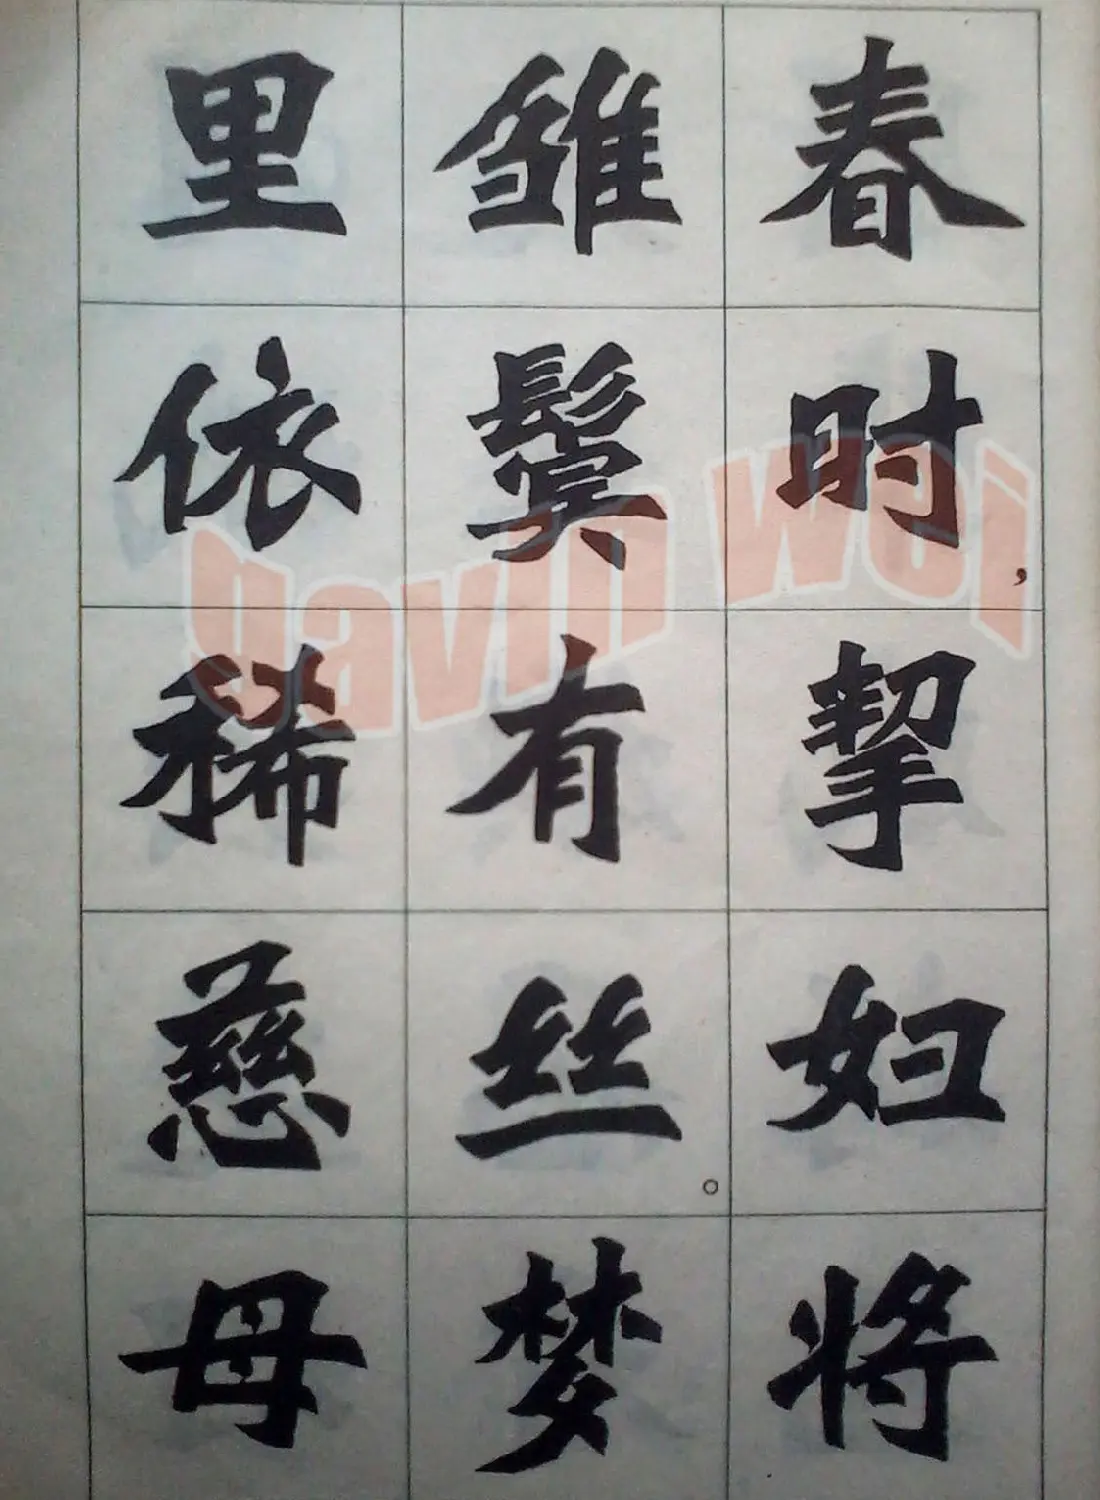 春时，挈妇将
雏鬓有丝。梦
里依稀慈母
gavin wei